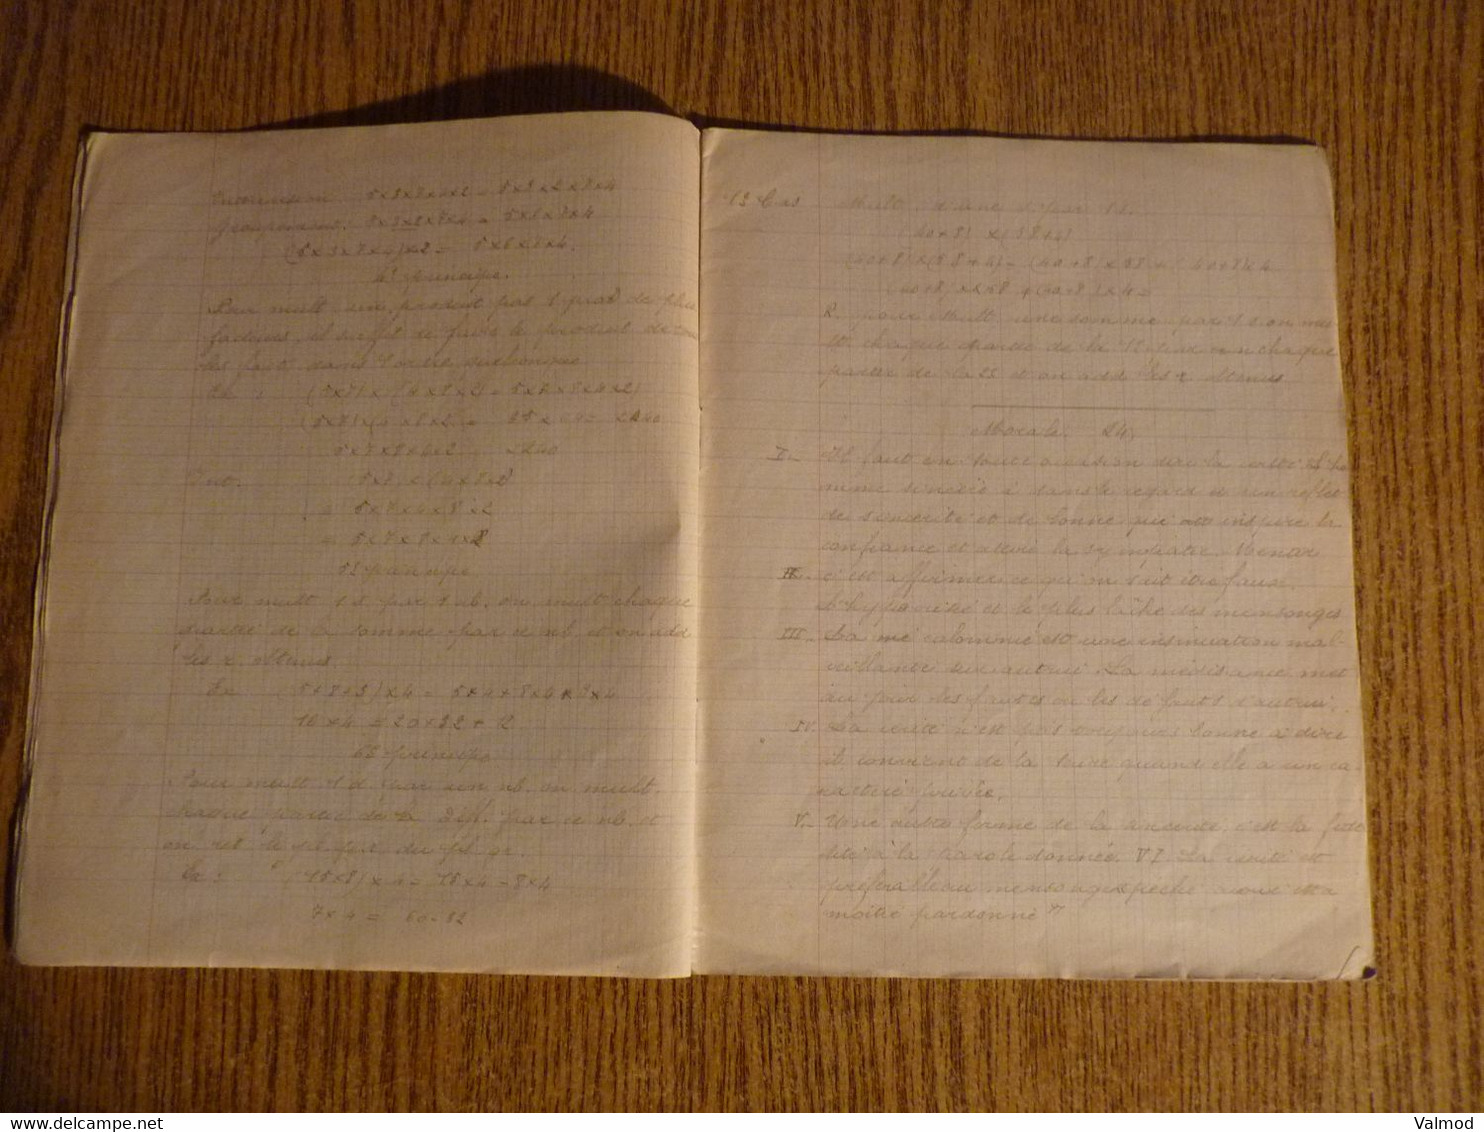 5×3×7×4×2 = 5×3×2×7×4
5×3×2×7×4 = 5×6×7×4
(5×3×7×4)×2 = 5×6×7×4.
4e principe.
Pour mult. un produit par 1 prod de plus
facteurs, il suffit de faire le produit de tous
les fact. dans l'ordre quelconque
Ex : (5×7)×(4×8×2) = 5×7×8×4×2
5×7×8×4×2 2240
5×7×(4×8×2)
= 5×7×4×8×2
= 5×7×8×4×2
5e principe
Pour mult 1 s par 1 nb. on mult chaque
partie de la somme par ce nb. et on add
les r. obtenus.
Ex (5+8+3)×4 = 5×4+8×4+3×4
16×4 = 20+32+12
6e principe
Pour mult 1 d par un nb. on mult.
chaque partie de la Diff. par ce nb. et
on ret. le pl. pet. du pl. gr.
Ex : (15-8)×4 = 15×4-8×4
7×4 = 60-32
Cas Mult. d'une s. par 1 s.
(40+8)×(38+4)
(40+8)×(38+4) = (40+8)×38 + (40+8)×4
R. pour mult une somme par 1 s on mult
chaque partie de la 1ère par chaque
partie de la 2e et on add les r obtenus
Morale 24.
I.- Il faut en toute occasion dire la vérité
sincère à dans le regard un reflet
de sincérité et de bonne qui inspire la
confiance et attire la sympathie. Mentir
II.- c'est affirmer ce qu'on sait être faux.
L'hypocrisie est le plus lâche des mensonges
III.- La calomnie est une insinuation mal-
veillante sur autrui La médisance met
au jour les fautes ou les défauts d'autrui.
IV. La vérité n'est pas toujours bonne à dire
il convient de la taire quand elle a un ca-
ractère privée.
V.- Une autre forme de la sincérité c'est la fidé-
lité à la parole donnée. VI La vérité est
préférable au mensonge péché avoué est à
moitié pardonné"
Valmod